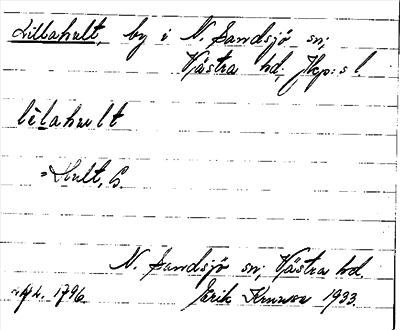 Lillahult, by i N. Sandsjö sn;
Västra hd. Jkp:s l.
lilahult
= Hult, b.
N. Sandsjö sn; Västra hd.
1796 Erik 1933.